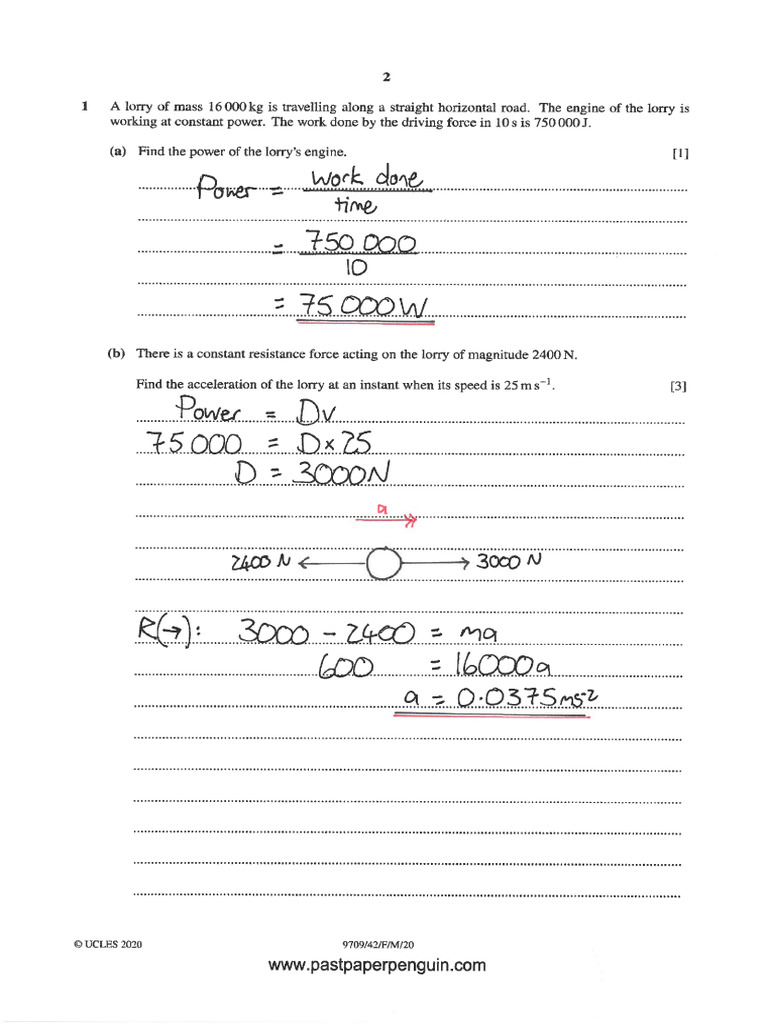 2
1 A lorry of mass 16 000 kg is travelling along a straight horizontal road. The engine of the lorry is
working at constant power. The work done by the driving force in 10 s is 750 000 J.
(a) Find the power of the lorry's engine. [1]
Power = work done
time
= 750 000
10
= 75 000W
(b) There is a constant resistance force acting on the lorry of magnitude 2400 N.
Find the acceleration of the lorry at an instant when its speed is 25 m s⁻¹. [3]
Power = Dv
75 000 = D×25
D = 3000N
a
2400 N 3000 N
R(→): 3000 - 2400 = ma
600 = 16000a
a = 0.0375ms⁻²
© UCLES 2020 9709/42/F/M/20
www.pastpaperpenguin.com